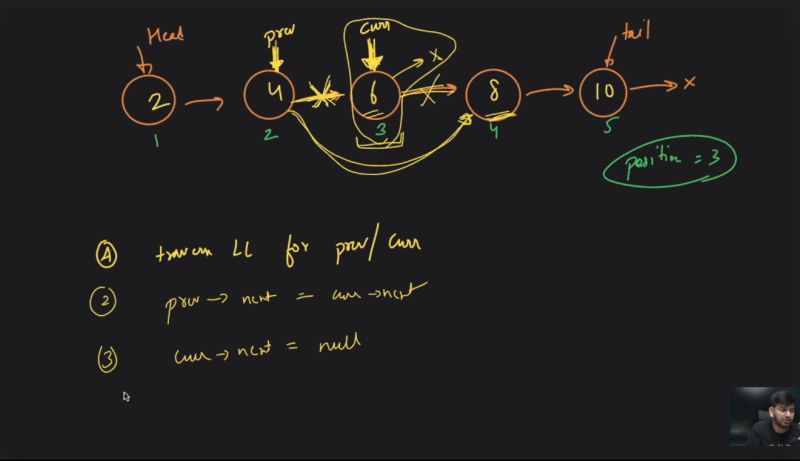 Head prev curr tail
2 4 6 8 10
1 2 3 4 5
position = 3
① travers LL for prev/curr
② prev → next = curr → next
③ curr → next = null